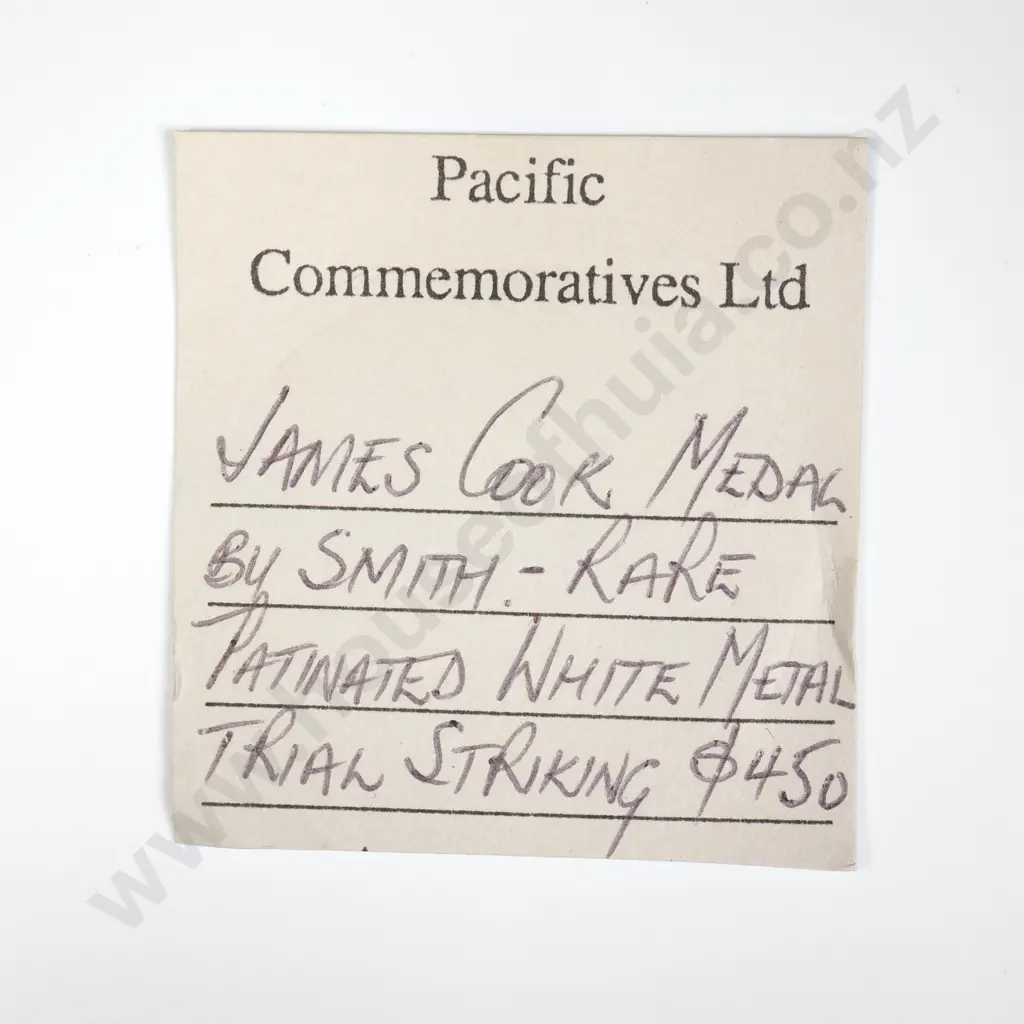 Pacific
Commemoratives Ltd
JAMES COOK MEDAL
BY SMITH. - RARE
PATINATED WHITE METAL
TRIAL STRIKING $450
www.houseofhuia.co.nz